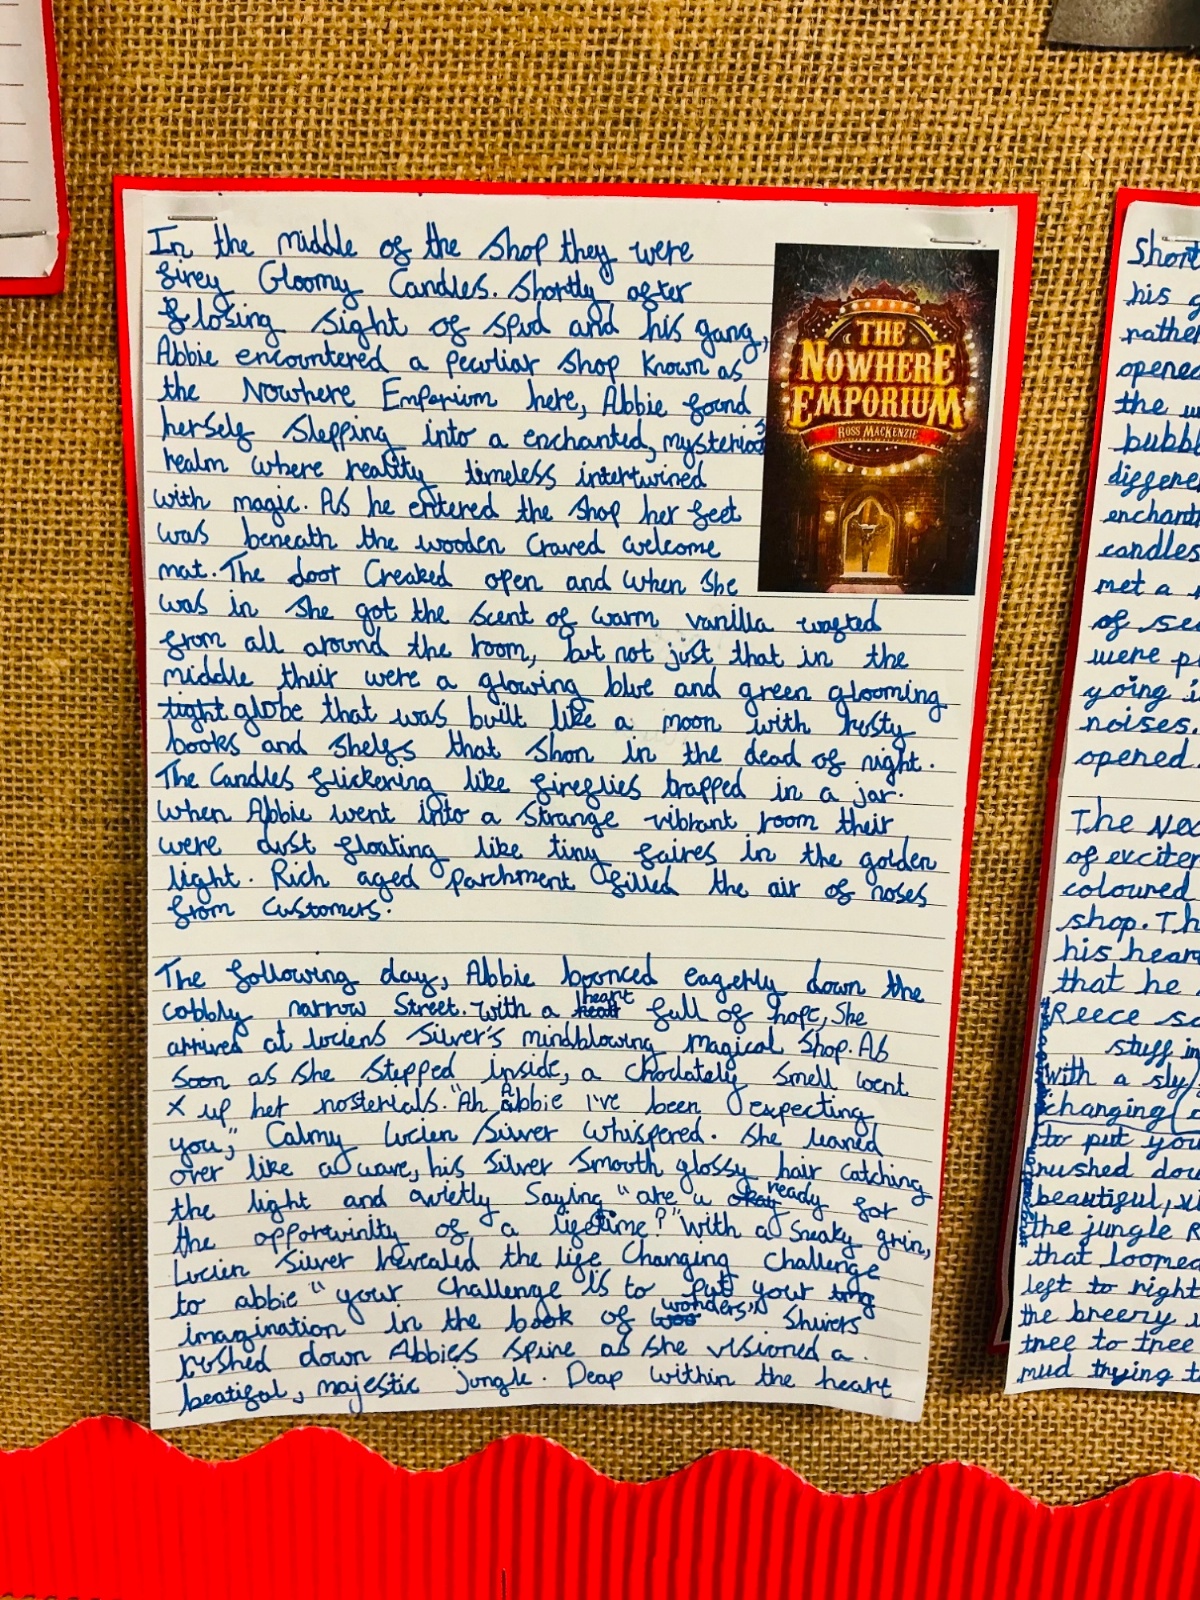 In the middle of the shop they were
firey Gloomy Candles. Shortly after
flosing sight of spud and his gang,
Abbie encountered a peculiar shop known as
the Nowhere Emporium here, Abbie found
herself slepping into a enchanted, mysterios
realm where reality timeless intertwined
with magic. As he entered the shop her feet
was beneath the wooden Craved welcome
mat. The door Creaked open and when she
was in she got the scent of warm vanilla wafted
from all around the room, but not just that in the
middle their were a glowing blue and green glooming
tight globe that was built like a moon with rusty
books and shelfs that shon in the dead of night.
The Candles flickering like fireflies trapped in a jar.
When Abbie went into a strange vibrant room their
were dust floating like tiny faires in the golden
light. Rich aged parchment filled the air of noses
from Customers.
The following day, Abbie bounced eagerly down the
cobbly narrow Street. With a heart full of hope, She
arrived at luciens Silver's mindblowing magical Shop. As
soon as she stepped inside, a choclately smell went
x up her nosterials. "Ah Abbie I've been expecting
you," Calmy Lucien Silver whispered. She leaned
over like a wave, his Silver Smooth glossy hair catching
the light and quietly Saying "are u okay ready for
the opportvinity of a lifetime?" with a sneaky grin,
Lucien Silver hevealed the life Changing challenge
to abbie "your Challenge is to put your
imagination in the book of wonders" Shivers
rushed down Abbies spine as she visioned a.
beatiful, majestic jungle. Deap within the heart
THE
NOWHERE
EMPORIUM
ROSS MACKENZIE
Short
his
rathe
opened
the
bubbl
differe
enchant
candles
met a
of se
were p
going i
noises.
opened
The Nex
of excite
coloured
shop. Th
his hear
that he
Reece s
stuff in
with a sly
changing
to put you
rushed do
beautiful,
the jungle R
that loomed
left to right
the breezy
tree to tree
mud trying t